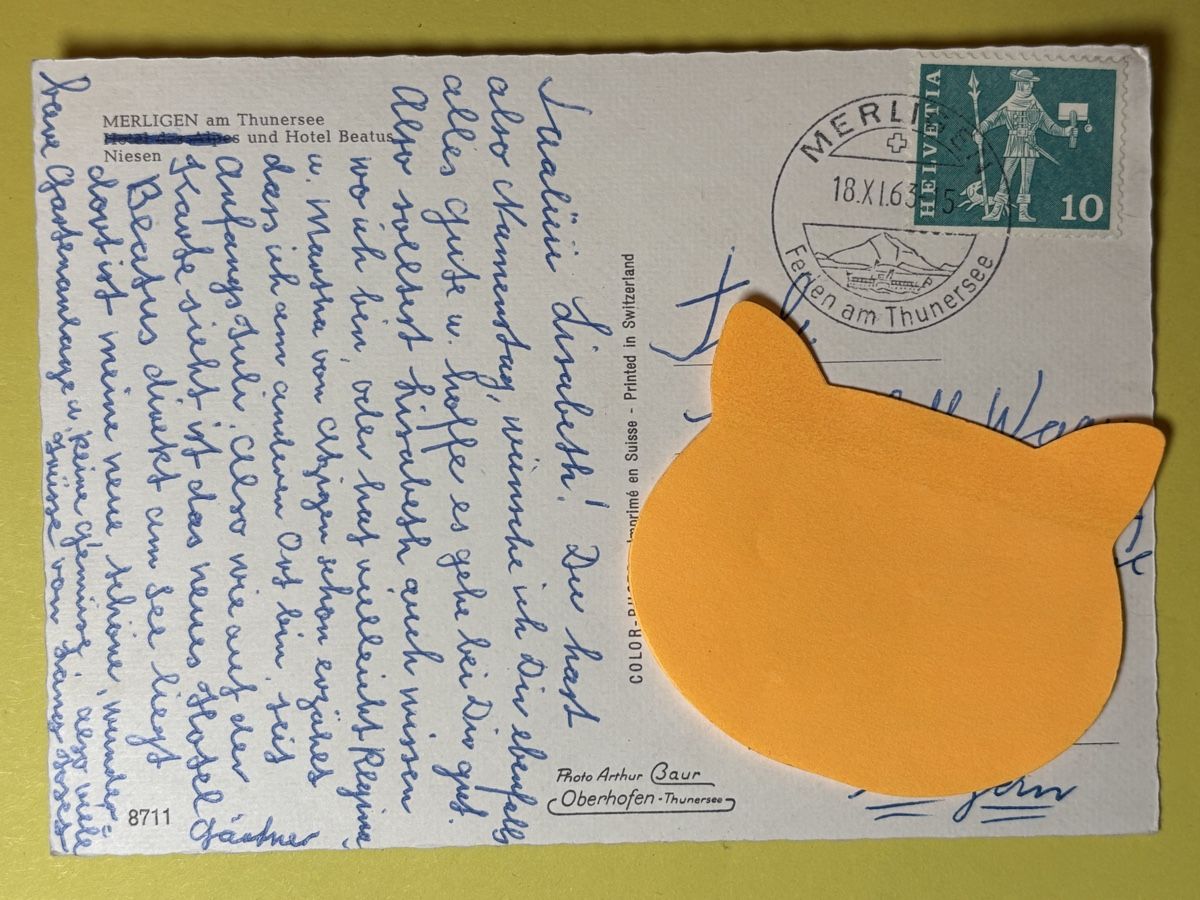 MERLIGEN am Thunersee
Hotel des Alpes und Hotel Beatus
Niesen
MERLIGEN
18.XI.63-15
Ferien am Thunersee
HELVETIA
10
Lisabeth! Du hast
also Namenstag, wünsche ich Dir ebenfalls
alles gute u. hoffe es gehe bei Dir gut.
Also sollest Lisabeth auch wissen
wo ich bin, oder hat vielleicht Regina
u. Martha von schon erzählt
dass ich am andern Ort bin, seit
Anfangs Juli. Also wie auf der
Karte sieht ist das neues Hotel
Beatus direkt am See liegt
dort ist meine neue schöne, wunder-
bare Gartenanlage u. keine gemüse, also viele
grüsse von
Gärtner
COLOR- Imprimé en Suisse - Printed in Switzerland
Photo Arthur Baur
Oberhofen-Thunersee
8711